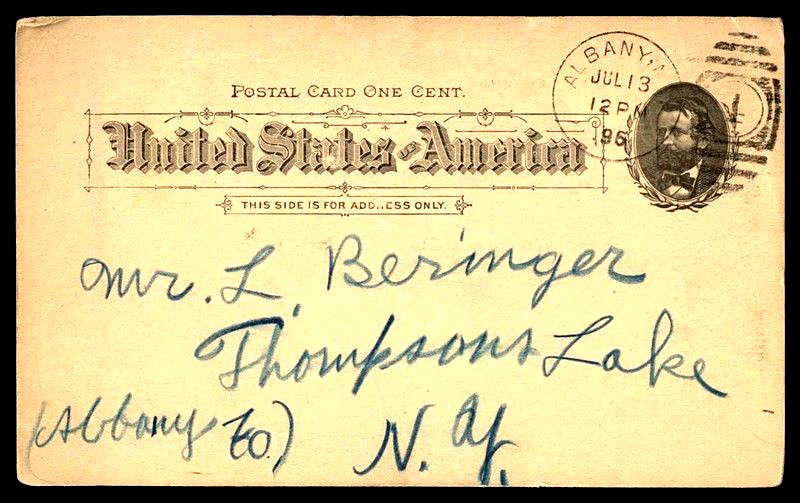 POSTAL CARD ONE CENT.
United States of America
THIS SIDE IS FOR ADDRESS ONLY.
ALBANY, N
JUL 13
12 PM
1
Mr. L. Beringer
Thompsons Lake
(Albany Co.) N. Y.